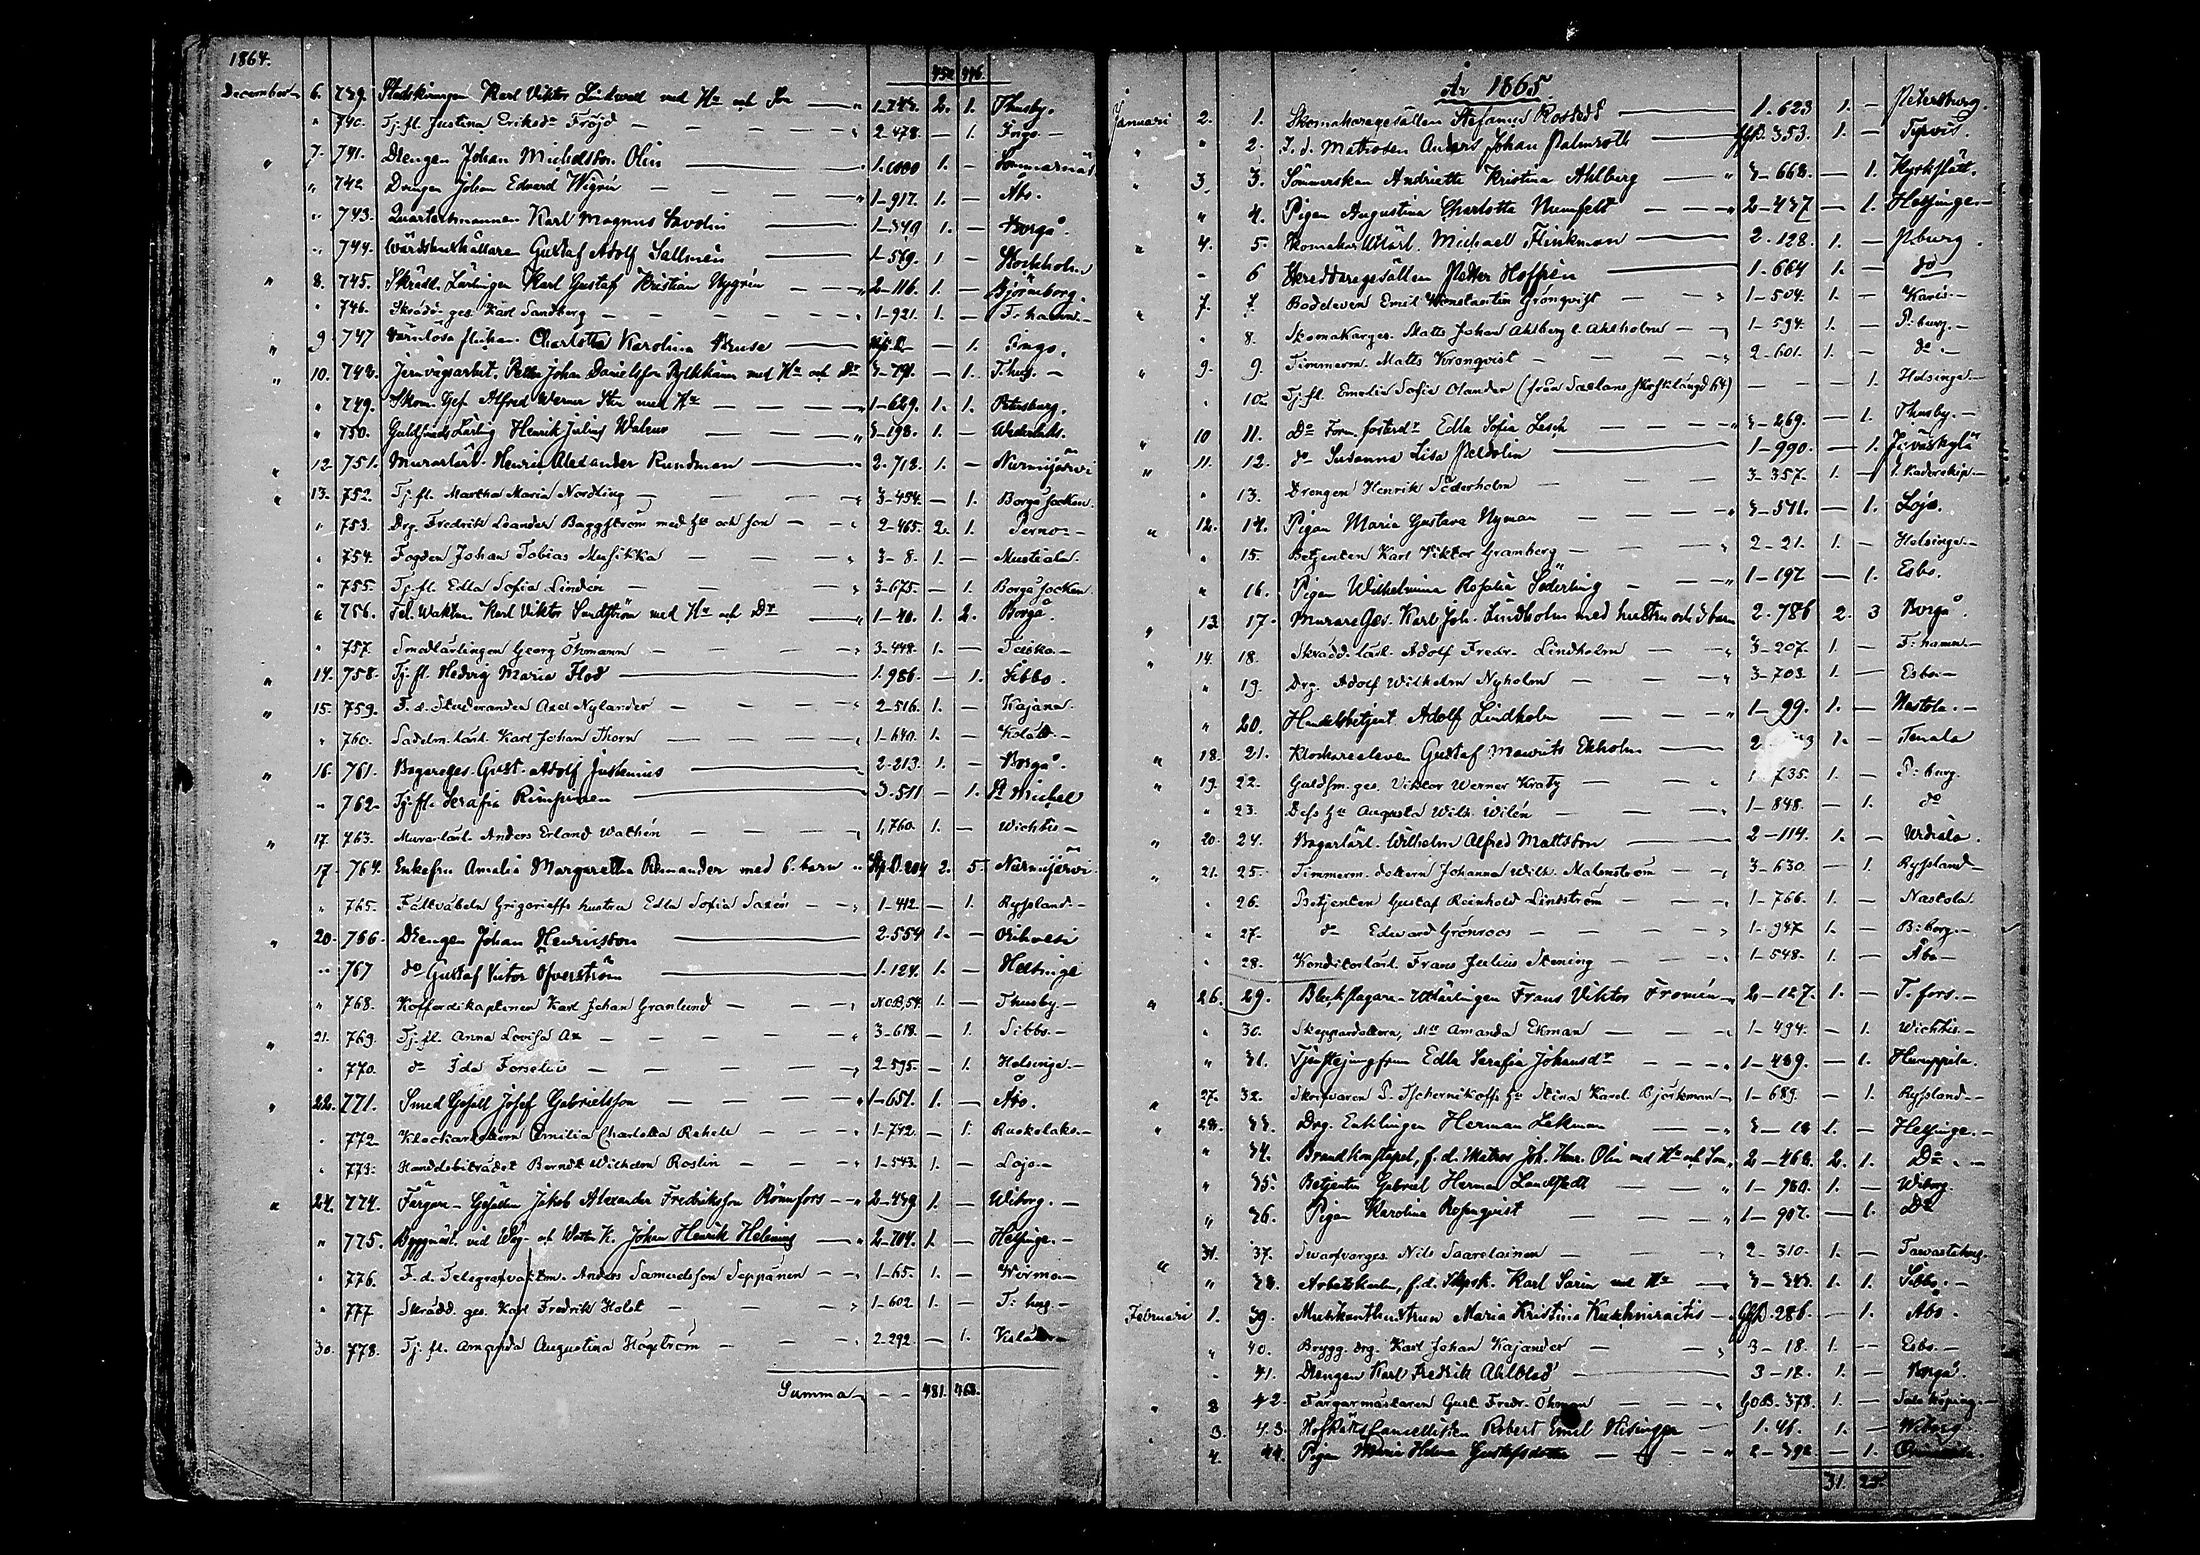 1864.
452 446.
December 6. 739. Stadskusken Karl Viktor Lindwall med Hu och Son — " 1-243. 2. 1. Thusby.
" 740. Tj. fl. Justina Eriksdr Fröjd — " 2-478. — 1. Ingo —
" 7. 741. Drengen Johan Michelsson Olin — " 1-1000 1. — Sommarnäs
" 742 Drengen Johan Edvard Wigrén — " 1-917. 1. — Åbo.
" 743. Quartersmannen Karl Magnus — " 1-349 1. — Borgå.
" 744. Wärdshushållare Gustaf Adolf Sallmén — 1-569. 1 — Stockholm
" 8. 745. Skrädd. Lärlingen Karl Gustaf Kristian Nygrén — " 2-116. 1. — Björneborg.
" 746. Skrädd. ges. Karl Sandberg — " 1-921. 1. — F: hamn. —
" 9 747 Värnlösa flickan Charlotta Karolina — — 1. Ingo.
" 10. 748. Jernvägsarbet. Petter Johan Danielsson med Hu och Dr 3-791. — 1. T:hus. —
" 749. Skom. Ges. Alfred Werner Sten med Hu — " 1-629. 1. 1. Petersburg.
" 750. Guldsmeds Lärling Henrik Julius — " 3-198. 1. — Wederlaks.
" 12 751. Murarlärl. Henric Alexander Rundman — " 2-712. 1. — Nurmijärvi
" 13. 752. Tj. fl. Martha Maria Nordling — " 3-454. — 1. Borgå Socken.
" 753. Drg. Fredrik Leander Baggström med Hu och Son — " 2-465. 2. 1. Perno —
" 754. Fogden Johan Tobias Musikka — " 3-8. 1. — Mustiala. —
" 755. Tj. fl. Edla Sofia Lindén — " 3-675. — 1. Borgå Socken.
" 756. Tel. Waktm. Karl Viktor Sundström med Hu och Dr — " 1-40. 1. 2. Borgå.
" 757. Smedlärlingen Georg Öhmann — " 3-448. 1. — Teisko. —
" 14. 758. Tj. fl. Hedvig Maria Flod — 1-986. — 1. Sibbo.
" 15. 759. F. d. Studeranden Axel Nylander — " 2-516. 1. — Kajana.
" 760. Sadelm. lärl. Karl Johan Thorn — " 1-640. 1. —
" 16. 761. Bagareges. Gust. Adolf Juslenius — 2-213. 1. — Borgå.
" 762. Tj. fl. Serafia Rimpinen — 3-511 — 1. St Michel
" 17. 763. Murarlärl. Anders Erland Wathén — " 1,760. 1. — Wichtis —
17. 764. Enkefru Amalia Margaretha Remander med 6. barn " 204 2. 5. Nurmijärvi.
" 765. Fältväbeln Grigorieffs hustru Edla Sofia Saxén — " 1-412. — 1. Ryssland. —
" 20. 766. Drengen Johan Henricsson — 2-554 1. — Orihvesi
" 767 do Gustaf Victor Öfverström — 1-124. 1. — Helsinge
" 768. Kofferdikaptenen Karl Johan Granlund — " N.O.B. 54. 1. — Thusby —
" 21. 769. Tj. fl. Anna Lovisa Ax — " 3-618. — 1. Sibbo. —
" 770. do Ida Forselius — " 2-595. — 1. Helsinge. —
" 22. 771. Smed Gesäll Josef Gabrielsson — " 1-651. 1. — Åbo.
" 772. Klockardottern Emilia Charlotta Rehell — " 1-742. — 1. Ruokolaks. —
" 773. Handelsbiträdet Berndt Wilhelm Roslin — " 1-543. 1. — Lojo. —
" 24. 774. Färgare-Gesällen Jakob Alexander Fredriksson Rönnfors — " 2-459. 1. — Wiborg. —
" 775. Byggmäst. vid Wäg- och Watten K. Johan Henrik Helenius — " 2-704. 1. — Helsinge. —
" 776. F. d. Telegrafvaktm. Anders Samuelsson Seppänen — " 1-65. 1. — Wirmo —
" 777 Skrädd. ges. Karl Fredrik Holst — " 1-602. 1. — T: borg —
30. 778. Tj. fl. Amanda Augustina Högström — " 2-292. — 1.
Summa — 481. 468.
År 1865.
Januari 2. 1. Skomakaregesällen Stefanus Rostedt — 1-623 1. — Petersburg.
" " 2. F. d. Matrosen Anders Johan Palmroth — 353. 1. — Tyrvis.
" 3. 3. Sömmerskan Andriette Kristina Ahlberg — " 3-668. — 1. Kyrkslätt.
" 4. Pigan Augustina Charlotta Numfelt — " 2-437 — 1. Helsinge. —
" 4. 5. Skomakar Uttlärl. Michael Flinkman — 2-128. 1. — Pburg.
" 6 Skreddaregesällen Petter Hoffrén — 1-664 1. — do
" 7. 7. Bodeleven Emil Konstantin Grönqvist — " 1-504. 1. — Karis. —
" 8. Skomakarges. Matts Johan Ahlberg l. Ahlholm — " 1-594. 1. — P: burg. —
" 9. 9. Timmerm. Matts Kronqvist — 2-601. 1. — do —
" 10. Tj. fl. Emelie Sofia Olander (från Saelans Skrftlängd 64) — — 1. Helsinge. —
" 10 11. Do Form. fosterdr Edla Sofia Lesch — " 3-269. — 1. Thusby. —
" 11. 12. do Susanna Lisa Peldolin — 1-990. — 1. Jyväskylä
" 13. Drengen Henrik Söderholm — 3-357. 1. —
" 12. 14. Pigan Maria Gustava Nyman — " 3-571. — 1. Lojo.
" 15. Betjenten Karl Viktor Gramberg — " 2-21. 1. — Helsinge. —
" 16. Pigan Wilhelmina Rosalia Söderling — " 1-197 — 1. Esbo.
" 13. 17. Murare Ges. Karl Joh. Lindholm med hustru och 3 barn 2-786 2. 3 Borgå.
" 14. 18. Skrädd. lärl. Adolf Fredr. Lindholm — " 3-207. 1. — F: hamn. —
" 19. Drg. Adolf Wilhelm Nyholm — " 3-703. 1. — Esbo —
" 20. Handelsbetjent. Adolf Lindholm — " 1-99. 1. — Nastola. —
" 18. 21. Klockareeleven Gustaf Mauritz Ekholm — 1. — Tenala
" 19. 22. Guldsm. ges. Viktor Werner Kraty — 735. 1. — P: burg.
" 23. Dess Hu Augusta Wilh. Wilén — " 1-848. — 1. do
" 20. 24. Bagarlärl. Wilhelm Alfred Mattsson — 2-114. 1. — Urdiala.
" 21. 25. Timmerm. dottern Johanna Wilh. Malmström — " 3-630. — 1. Ryssland —
" 26. Betjenten Gustaf Reinhold Lindström — " 1-766. 1. — Nastola.
" 27. do Edward Grönroos — " 1-947. 1. — B: borg. —
" 28. Konditorlärl. Frans Julius Stening — " 1-548. 1. — Åbo —
" 26. 29. Bleckslagare-Uttlärlingen Frans Viktor Fromén — " 2-127. 1. — T. fors. —
" 30. Skeppardottern, Mll Amanda Ekman — " 1-494. — 1. Wichtis. —
" 31. Tjenstejungfrun Edla Serafia Johansdr — " 1-489. — 1. Humppila.
" 27. 32. Skrifvaren P. Tschernikoffs Hu Stina Karol. Björkman — 1-689. — 1. Ryssland. —
" 28. 33. Drg. Herman Lekman — " 3-18 1. — Helsinge. —
" 34. Brandkonstapel, f. d. Matros Joh. Henr. Olin med Hu och Son " 2-462. 2. 1. Do —
" 35. Betjenten Gabriel Herman Lundstedt — " 1-980. 1. — Wiborg.
" 36. Pigan Karolina Rosenqvist — " 1-907. — 1. Do
" 31. 37. Swarfvarges. Nils Saarelainen — " 2-310. 1. — Tawastehus. —
" 38. Arbetskarln, f. d. Karl Sarin med Hu — " 3-343. 1. 1. Sibbo. —
Februari 1. 39. Musikanthustrun Maria Kristina — 286. — 1. Åbo.
" 40. Brygg. drg. Karl Johan Kajander — " 3-18. 1. — Esbo. —
" 41. Drengen Karl Fredrik Ahlblad — 3-12. 1. — Borgå.
" 3 42. Färgarmästaren Gust. Fredr. Öhman — " G.O.B. 378. 1. —
" 3. 43. Hofrätts Cancellisten Robert Emil Hisinger — 1-46. 1. — Wiborg.
4. 44. Pigan Maria Helena Gustafsdotter — " 2-392 — 1.
31. 25.